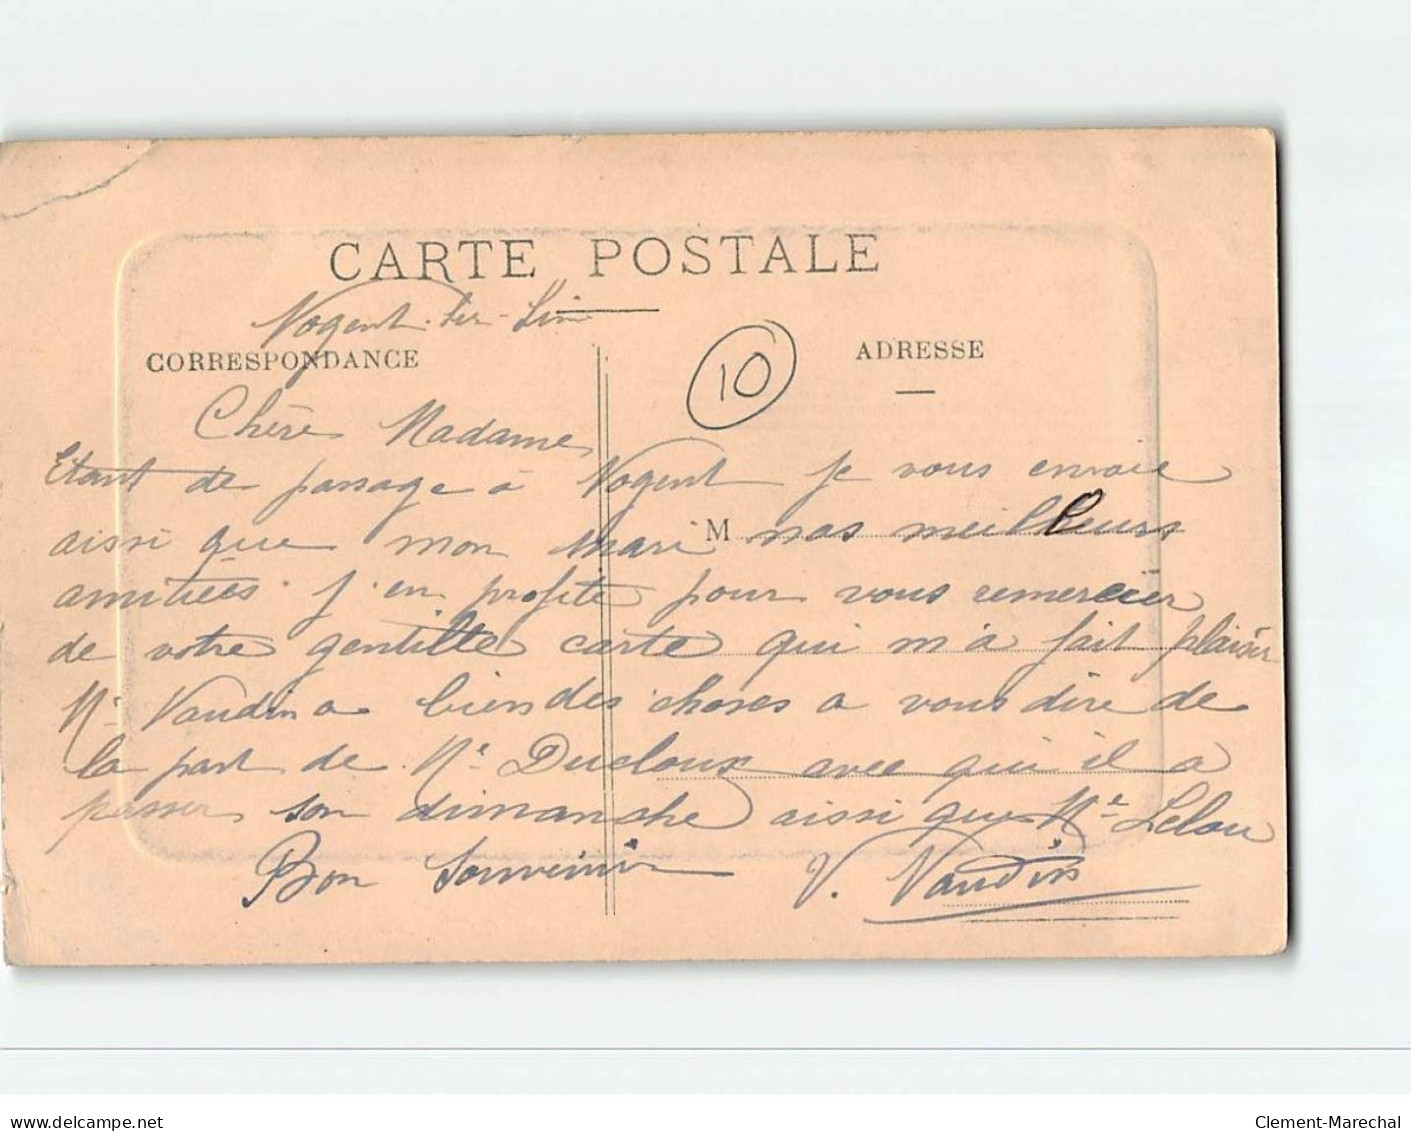 CARTE POSTALE
Nogent
CORRESPONDANCE
10
ADRESSE
Chère Madame
Etant de passage à Nogent je vous envoie
ainsi que mon mari M nos meilleurs
amitiées j'en profite pour vous remercier
de votre gentille carte qui m'a fait plaisir
Mr Vaudin a bien des choses a vous dire de
la part de Mr Ducloux avec qui il a
passer son dimanche ainsi que Mr Lelou
Bon Souvenir V. Vaudin
www.delcampe.net
Clement-Marechal